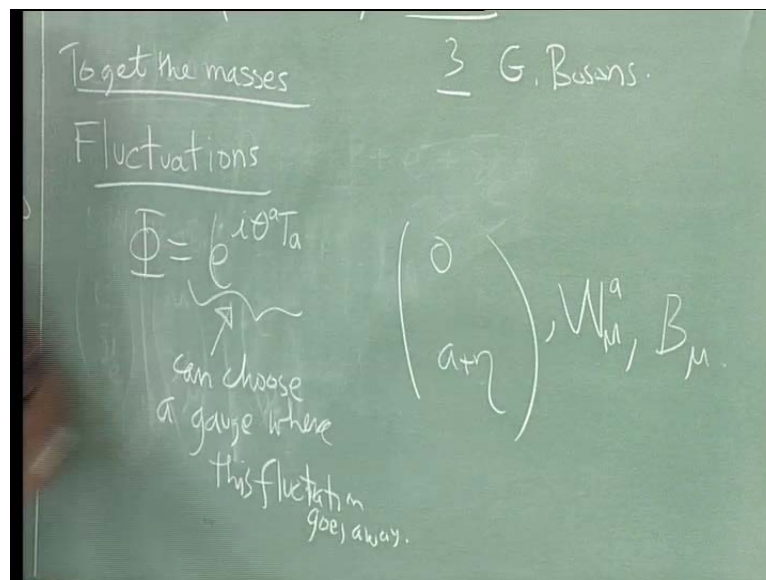 To get the masses
3 G. Bosons.
Fluctuations
Φ = e^{iθ^a T_a} (0 a+η), W_μ^a, B_μ.
can choose
a gauge where
this fluctation
goes away.